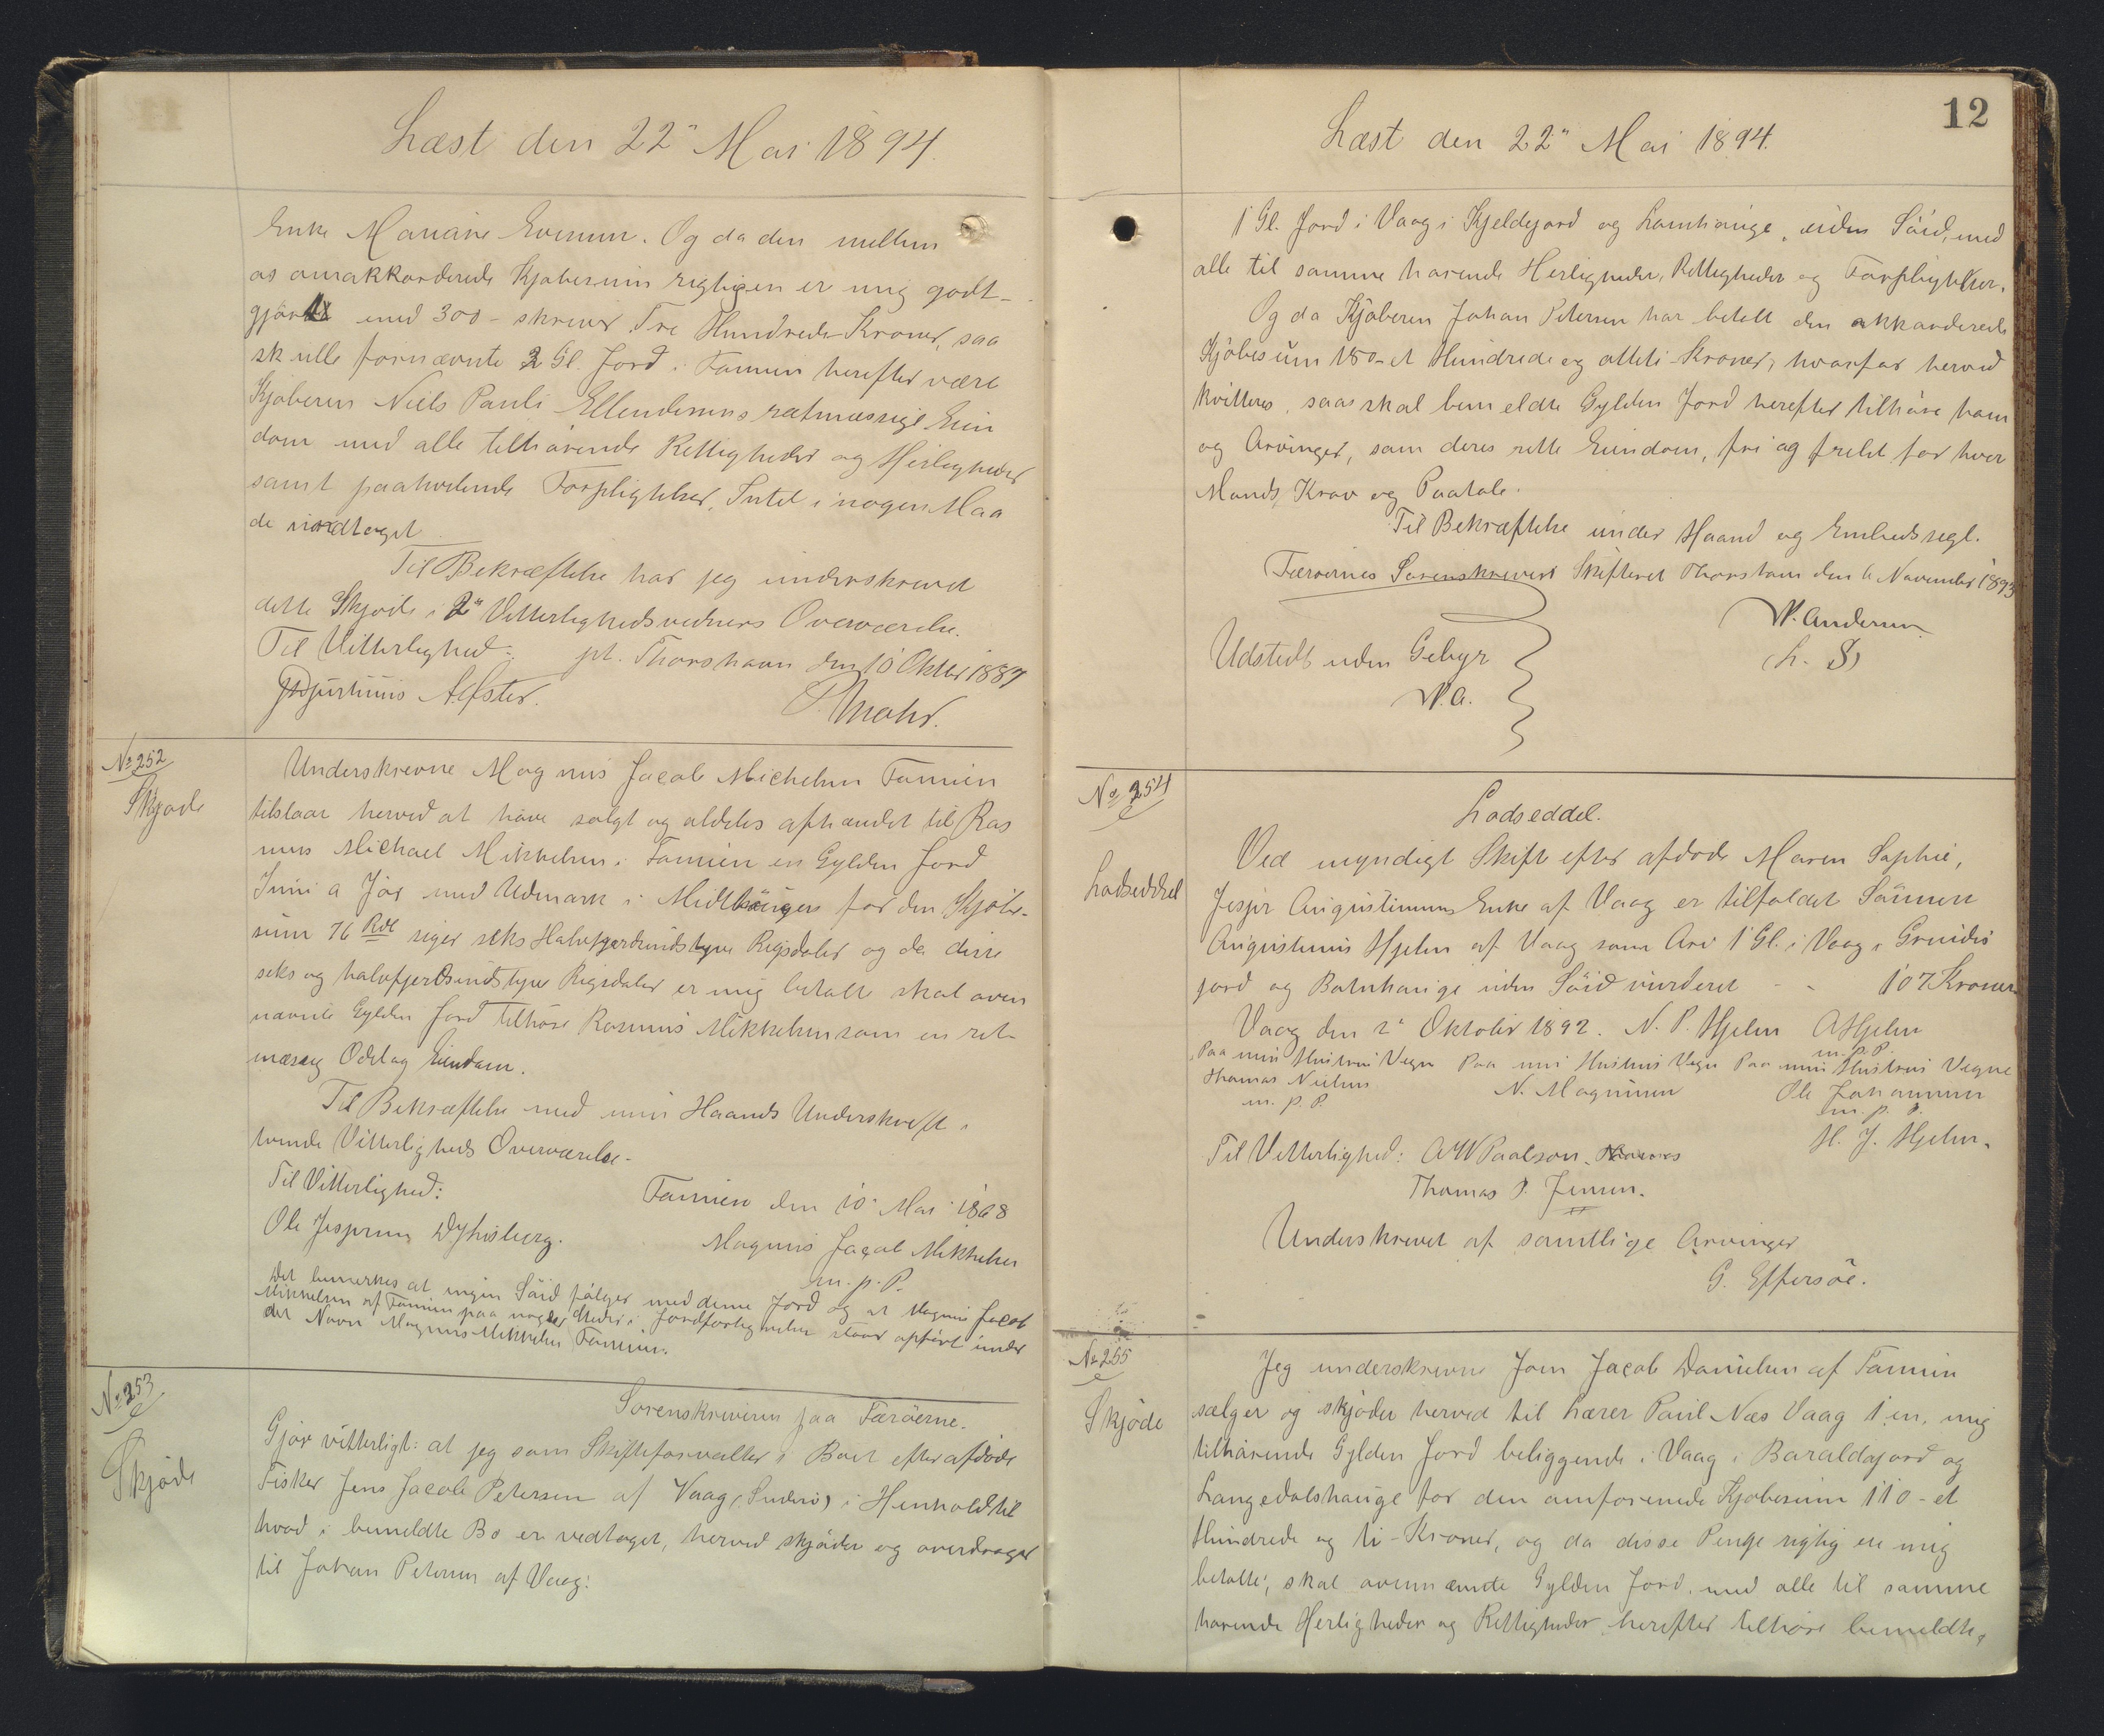 Læst den 22" Mai 1894.
Enke Mariane Evensen. Og da den mellem
os omakkorderede Kjøbesum rigtigen er mig godt-
gjort med 300 - skriver Tre Hundrede Kroner, saa
skulle fornævnte 2 Gl. Jord i Famien herefter være
Kjøberen Niels Pauli Ellendersens retmæssige Eien
dom med alle tilhørende Rettigheder og Herligheder
samt paahvilende Forpligtelser, Intet i nogen Maa
de undtaget.
Til Bekræftelse har jeg underskrevet
dette Skjøde i 2" Vitterlighedsvidners Overværelse.
Til Vitterlighed: pt. Thorshavn den 10 Oktbr 1887
Justinus Alfster. Mohr.
No 252
Skjøde
Underskrevne Magnus Jacob Michelsen Famien
tilstaar herved at have solgt og aldeles afhændet til Ras
mus Michael Mikkelsen i Famien en Gylden Jord
Inni a Jør med Udmark i Midthaugen for den Kjøbe-
sum 76 Rdl siger seks Halvfjerdsindstyve Rigsdaler og da disse
seks og halvfjerdsindstyve Rigsdaler er mig betalt skal oven
nævnte Gylden Jord tilhøre Rasmus Mikkelsen som en ret-
mæssig Odel og Eiendom.
Til Bekræftelse med min Haands Underskrift i
tvende Vitterligheds Overværelse.
Til Vitterlighed: Famien den 10 Mai 1868
Ole Jespersen Dyhrsberg. Magnus Jacob Mikkelsen
m. p. P.
Det bemærkes at ingen Søid følger med denne Jord og at Magnus Jacob
Mikkelsen af Famien paa nogle Steder i Jordfortegnelsen staar opført under
det Navn Magnus Mikkelsen Famien.
No 253
Skjøde
Sorenskriveren paa Færøerne.
Gjør vitterligt: at jeg som Skifteforvalter i Boet efter afdøde
Fisker Jens Jacob Petersen af Vaag (Suderø) i Henhold til
hvad i bemeldte Bo er vedtaget, herved skjøder og overdrager
til Johan Petersen af Vaag:
12
Læst den 22" Mai 1894.
1 Gl. Jord i Vaag i Kjeldejord og Lamhauge, uden Söid, med
alle til samme hørende Herligheder, Rettigheder og Forpligtelser.
Og da Kjøberen Johan Petersen har betalt den akkorderede
Kjøbesum 180 - et Hundrede og otteti - Kroner, hvorfor herved
kvitteres, saa skal bemeldte Gylden Jord herefter tilhøre ham
og Arvinger, som deres rette Eiendom, fri og frelst for hver
Mands Krav og Paatale.
Til Bekræftelse under Haand og Embedssegl.
Færøernes Sorenskriveri Skifteret Thorshavn den 6 November 1893
W. Andersen
Udstedt uden Gebyr (L. S)
W. A.
No 254
Lodseddel
Lodseddel.
Ved myndigt Skifte efter afdøde Maren Sophie,
Jesper Augustinussens Enke af Vaag er tilfaldet Sønnen
Augustinus Hjelm af Vaag som Arv 1 Gl. i Vaag i Gruidis
jord og Botnhauge uden Söid vurderet - - 107 Kroner
Vaag den 2" Oktober 1892. N. P. Hjelm A Hjelm
m. p. P.
Paa min Hustrus Vegne Paa min Hustrus Vegne Paa min Hustrus Vegne
Thomas Nielsen N. Magnussen Ole Johannesen
m. p. P. m. p. P.
H. J. Hjelm.
Til Vitterlighed: A W Poulson.
Thomas P. Jensen.
Underskrevet af samtlige Arvinger
G. Effersöe.
No 255
Skjøde
Jeg underskrevne Joen Jacob Danielsen af Famien
sælger og skjøder herved til Lærer Poul Næs Vaag 1 en, mig
tilhørende Gylden Jord beliggende i Vaag i Baraldajord og
Langedalshauge for den omforenede Kjøbesum 110 - et
Hundrede og ti - Kroner, og da disse Penge rigtig ere mig
betalte, skal ovennævnte Gylden Jord, med alle til samme
hørende Herligheder og Rettigheder herefter tilhøre bemeldte